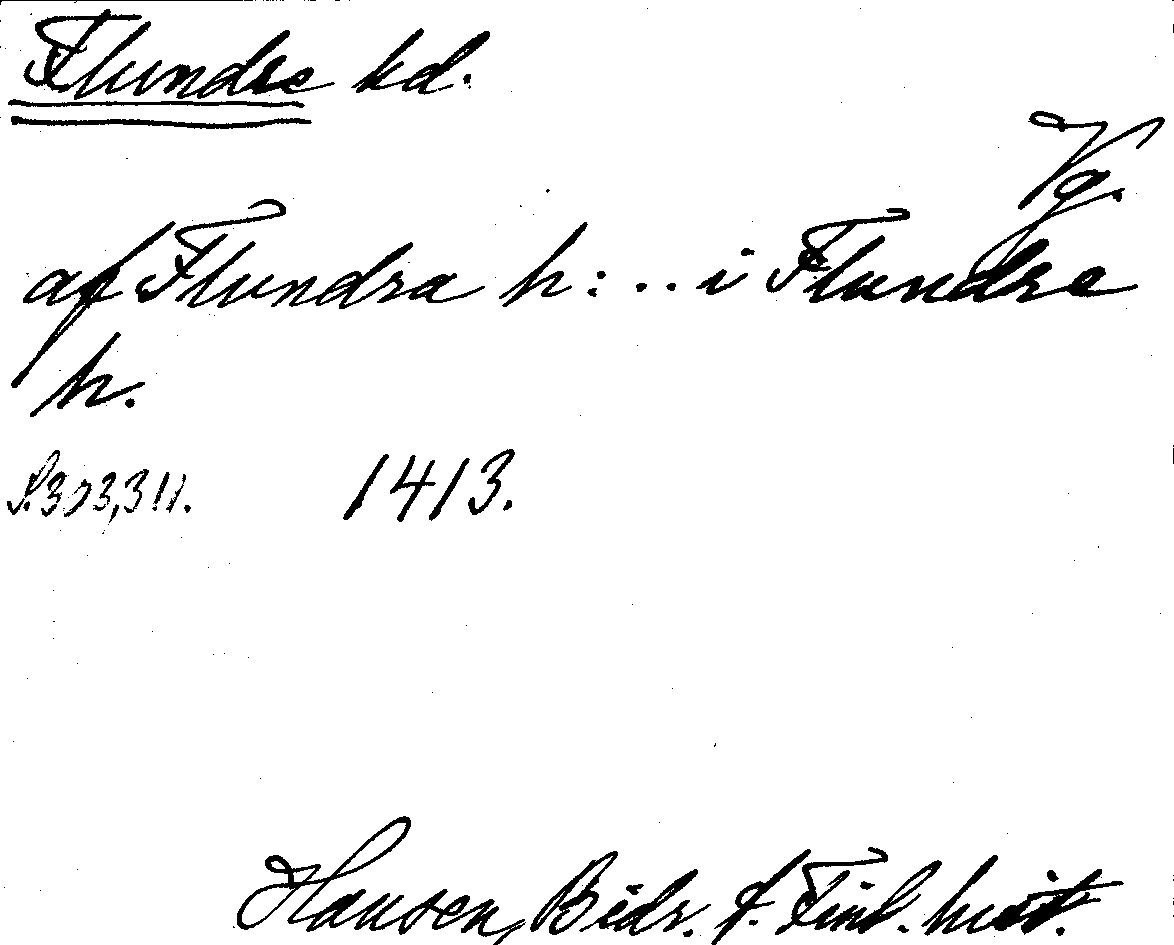 Flundre hd.
Vg.
af Flundra h: .. i Flundre
h.
S. 303, 311. 1413.
Hausen, Bidr. t. Finl. hist.